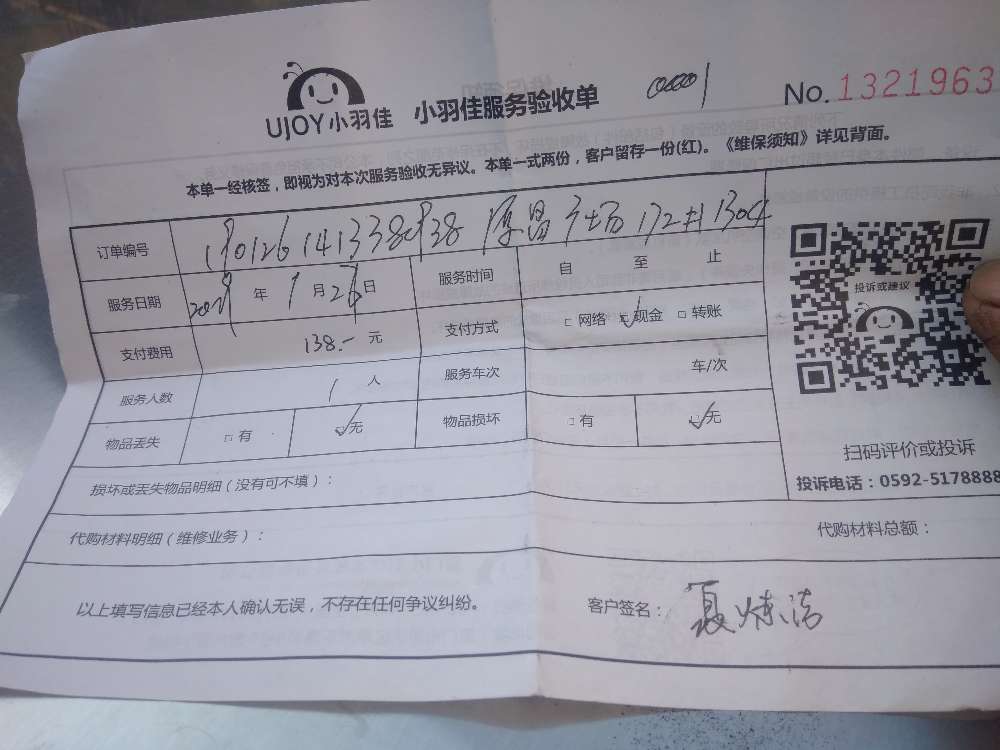 UJOY小羽佳 小羽佳服务验收单 00001 No.1321963
本单一经核签，即视为对本次服务验收无异议。本单一式两份，客户留存一份(红)。《维保须知》详见背面。
订单编号 172# 1304
服务日期 2019年1月26日 服务时间 自 至 止
支付费用 138.- 元 支付方式 □网络 ☑现金 □转账
服务人数 1 人 服务车次 车/次
物品丢失 □有 ☑无 物品损坏 □有 ☑无
投诉或建议
扫码评价或投诉
投诉电话：0592-5178888
损坏或丢失物品明细（没有可不填）：
代购材料明细（维修业务）： 代购材料总额：
以上填写信息已经本人确认无误，不存在任何争议纠纷。 客户签名：